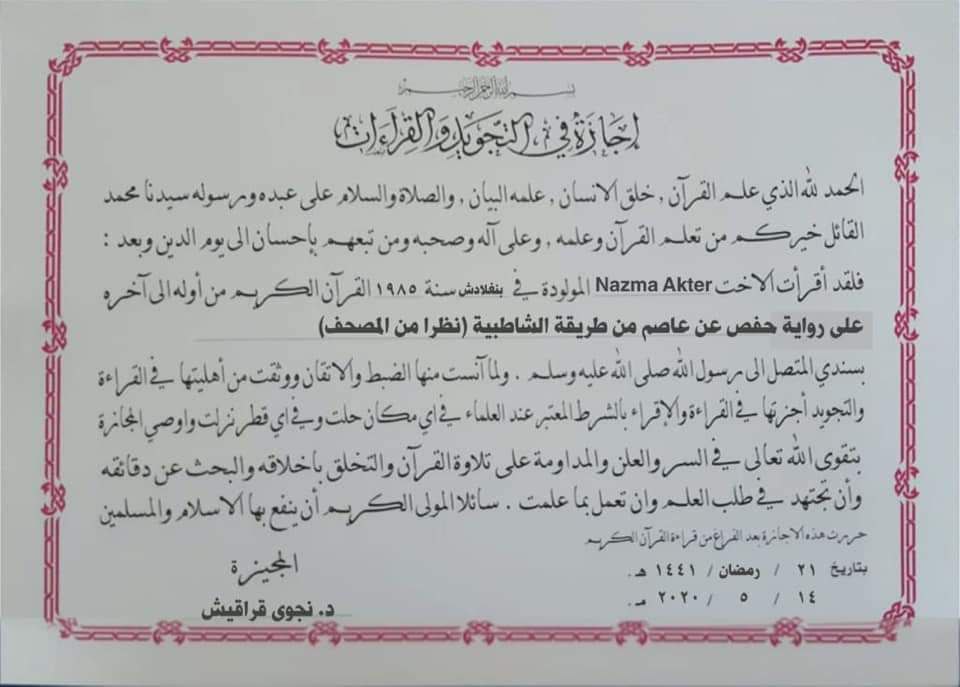 بسم الله الرحمن الرحيم
إجازة في التجويد والقراءات
الحمد لله الذي علم القرآن , خلق الانسان , علمه البيان , والصلاة والسلام على عبده ورسوله سيدنا محمد
القائل خيركم من تعلم القرآن وعلمه , وعلى آله وصحبه ومن تبعهم بإحسان الى يوم الدين وبعد :
فلقد أقرأت الاخت Nazma Akter المولودة في بنغلادش سنة ١٩٨٥ القرآن الكريم من أوله الى آخره
على رواية حفص عن عاصم من طريقة الشاطبية (نظرا من المصحف)
بسندي المتصل الى رسول الله صلى الله عليه وسلم . ولما آنست منها الضبط والاتقان ووثقت من أهليتها في القراءة
والتجويد أجزتها في القراءة والإقراء بالشرط المعتبر عند العلماء في اي مكان حلت وفي اي قطر نزلت واوصي المجازة
بتقوى الله تعالى في السر والعلن والمداومة على تلاوة القرآن والتخلق باخلاقه والبحث عن دقائقه
وأن تجتهد في طلب العلم وان تعمل بما علمت . سائلا المولى الكريم أن ينفع بها الاسلام والمسلمين
حررت هذه الاجازة بعد الفراغ من قراءة القرآن الكريم
بتاريخ ٢١ / رمضان / ١٤٤١ هـ .
١٤ / ٥ / ٢٠٢٠ مـ .
المجيزة
د. نجوى قراقيش